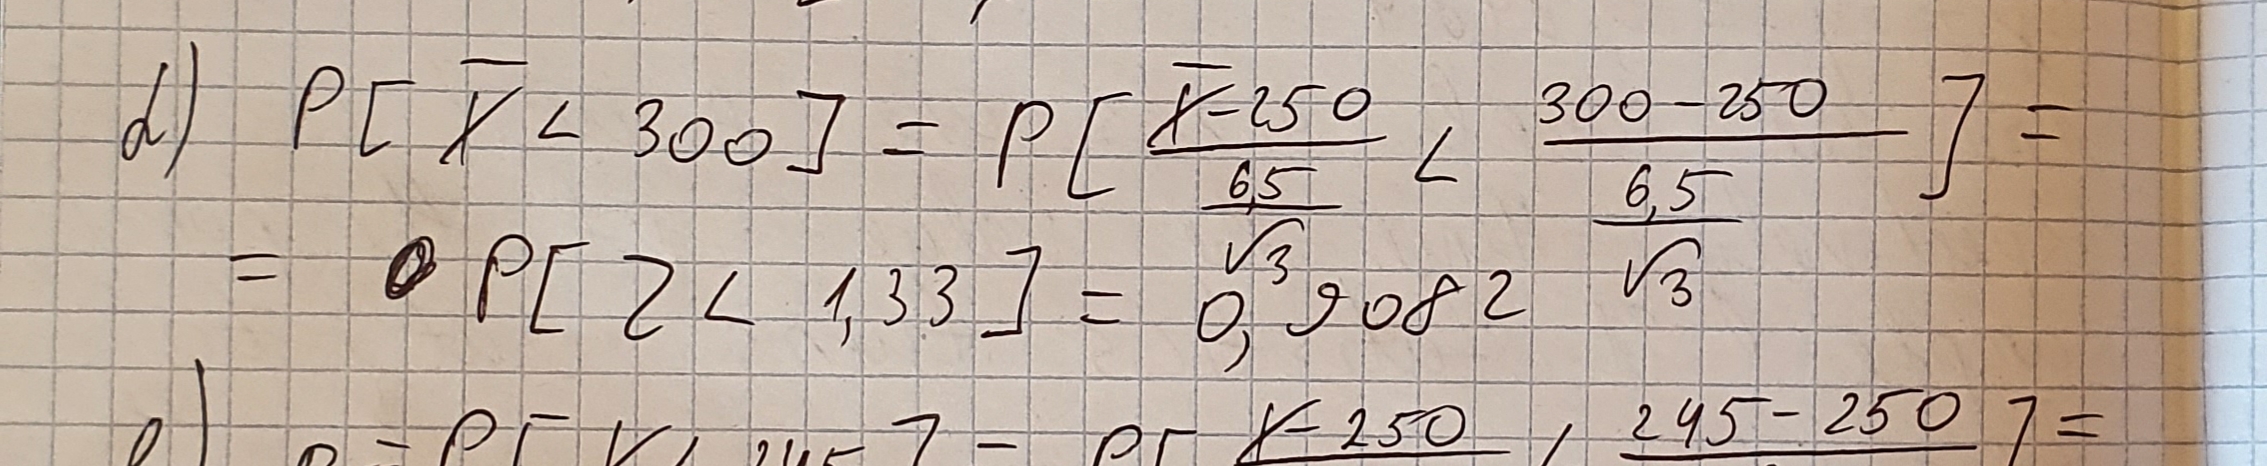 d) P[X̅ < 300] = P[(X̅-250)/(6,5/√3) < (300-250)/(6,5/√3)] =
= P[Z < 1,33] = 0,9082
X-250 245-250 ] =